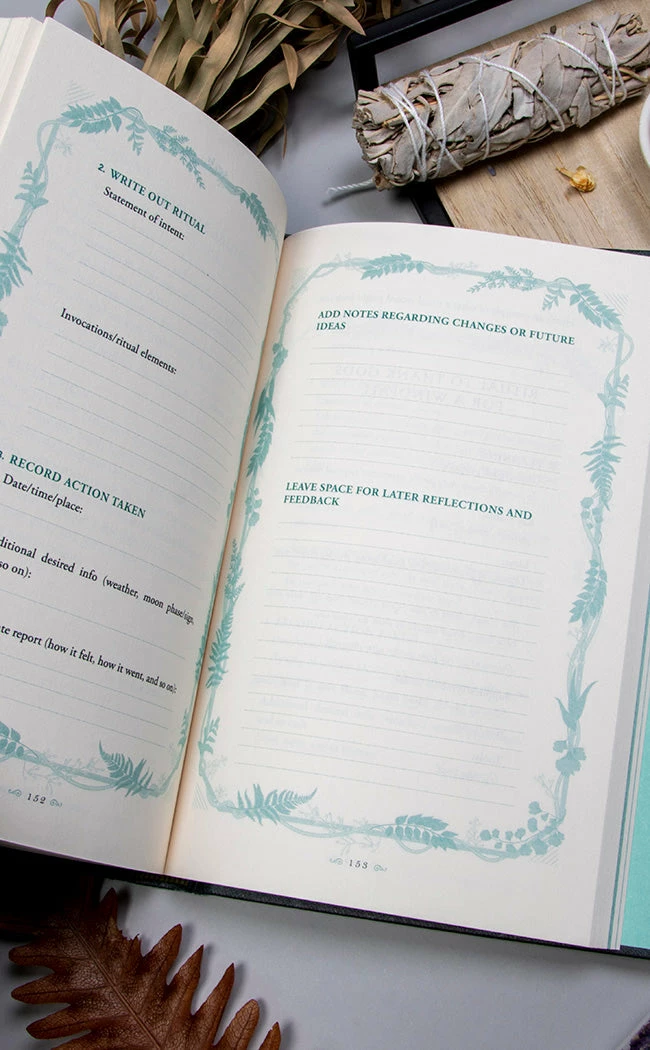 2. WRITE OUT RITUAL
Statement of intent:
Invocations/ritual elements:
3. RECORD ACTION TAKEN
Date/time/place:
desired info (weather, moon phase/sign,
so on):
report (how it felt, how it went, and so on):
152
ADD NOTES REGARDING CHANGES OR FUTURE
IDEAS
RITUAL TO THANK GODS
FOR A WINDFALL
LEAVE SPACE FOR LATER REFLECTIONS AND
FEEDBACK
153